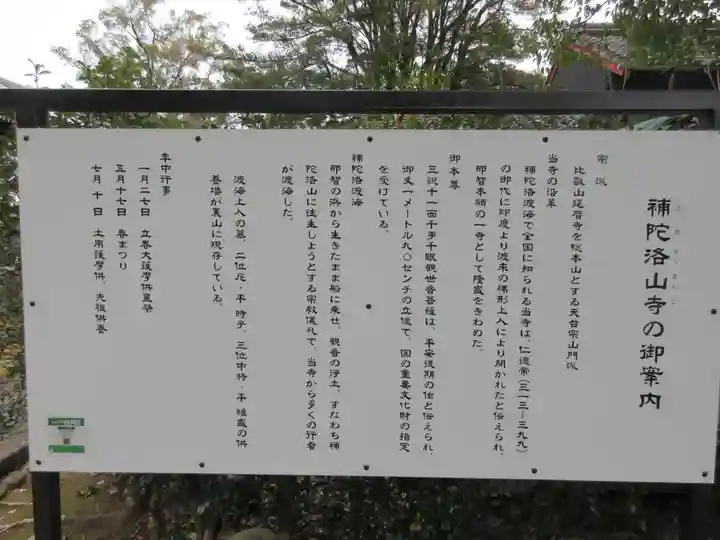 補陀洛山寺の御案内
ふだらくさんじ
宗派
比叡山延暦寺を総本山とする天台宗山門派
当寺の沿革
補陀洛渡海で全国に知られる当寺は、仁徳帝(三一三―三九九)
の御代に印度より渡来の裸形上人により開かれたと伝えられ、
那智本願の一寺として隆盛をきわめた。
御本尊
三貌十一面千手千眼観世音菩薩は、平安後期の作と伝えられ、
御丈一メートル九〇センチの立像で、国の重要文化財の指定
を受けている。
補陀洛渡海
那智の浜から生きたまま船に乗せ、観音の浄土、すなわち補
陀洛山に往生しようとする宗教儀礼で、当寺から多くの行者
が渡海した。
渡海上人の墓、二位尼・平 時子、三位中将・平 維盛の供
養塔が裏山に現存している。
年中行事
一月二七日 立春大護摩供星祭
五月十七日 春まつり
七月 十日 土用護摩供、先祖供養